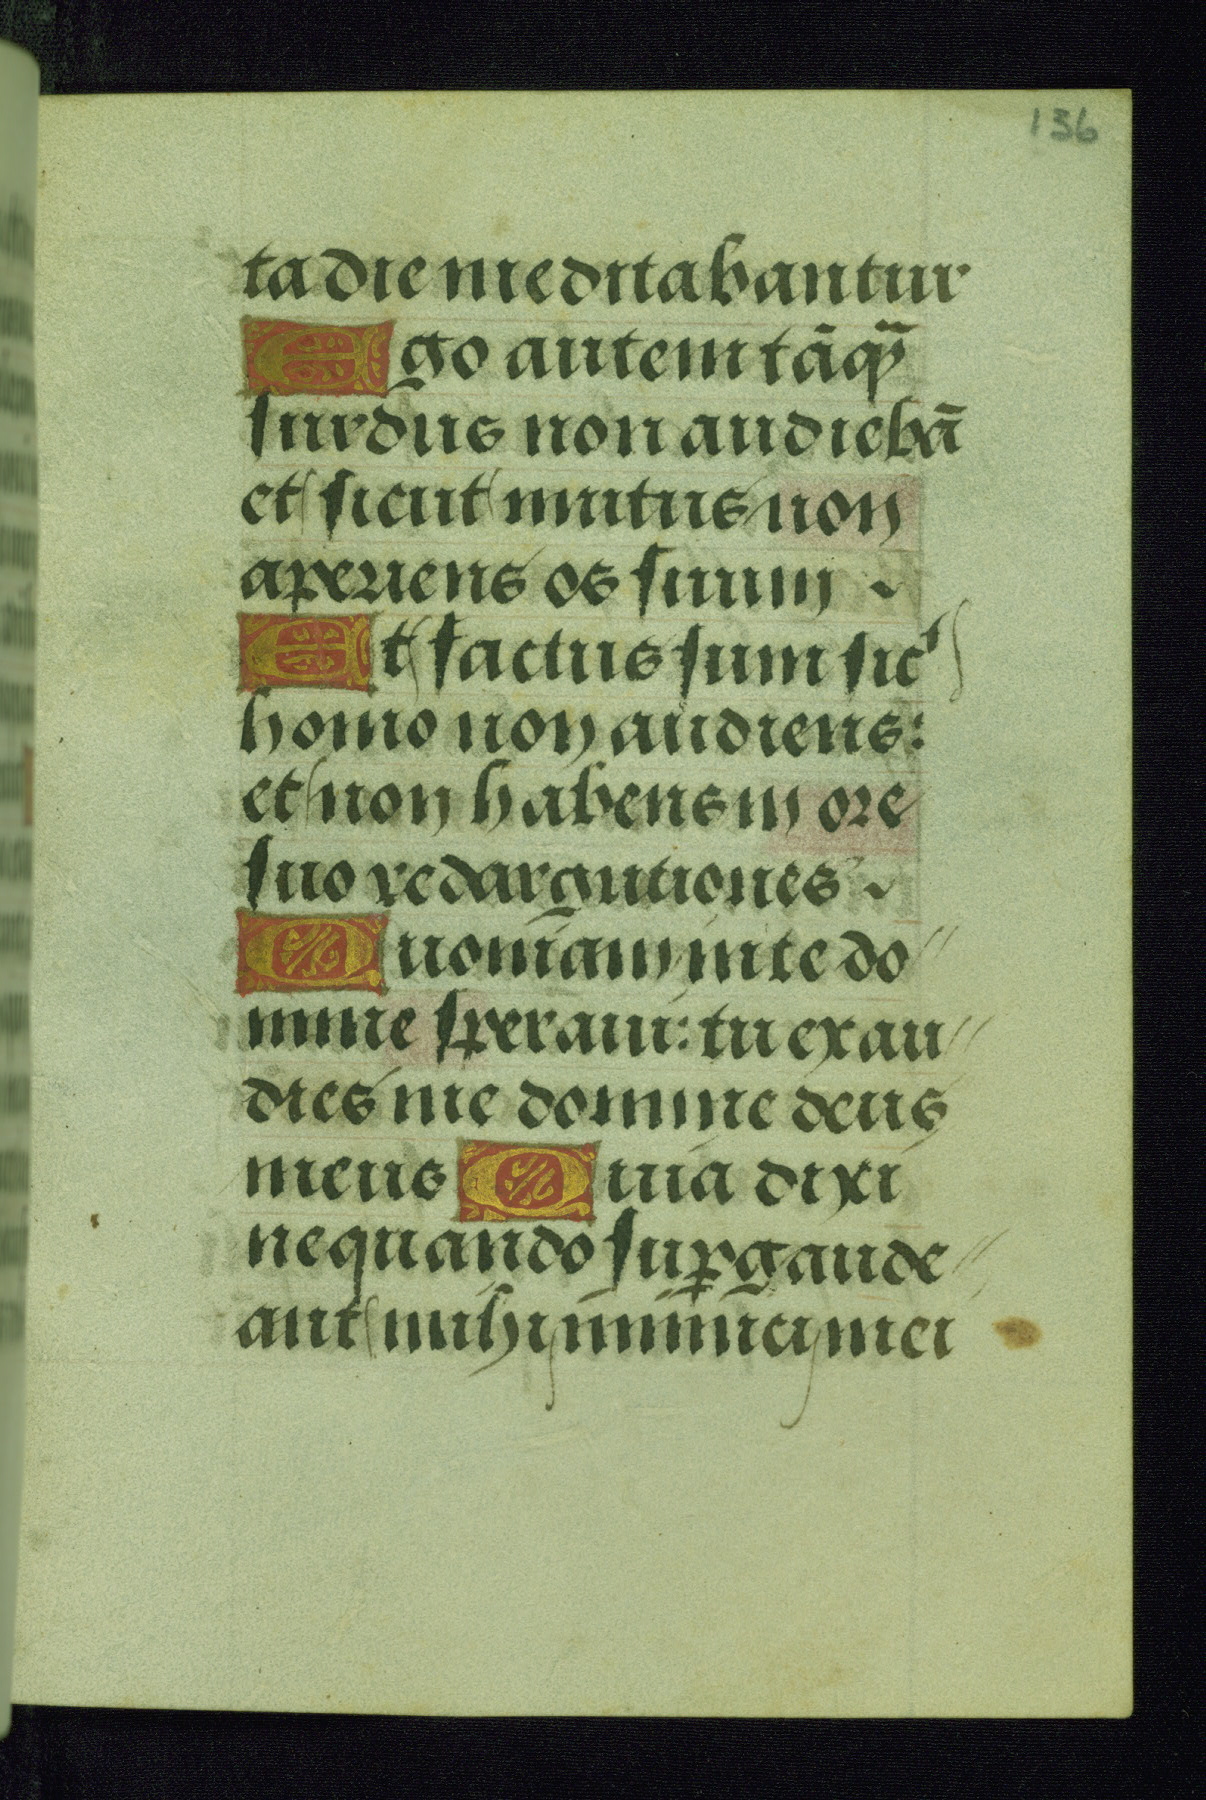 136
ta die meditabantur
Ego autem tāq̄
surdus non audiebā
et sicut mutus non
aperiens os suum ~
Et factus sum sicᵗ
homo non audiens:
et non habens in ore
suo redargutiones ~
Quoniam in te do//
mine speraui: tu exau//
dies me domine deus
meus Quia dixi
nequando suꝑgaude//
ant mihi inimici mei